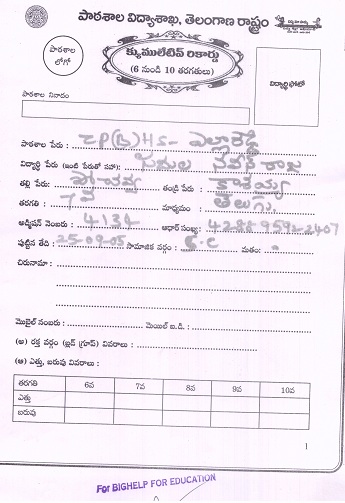 పాఠశాల విద్యాశాఖ, తెలంగాణ రాష్ట్రం
పాఠశాల
లోగో
క్యుములేటివ్ రికార్డు
(6 నుండి 10 తరగతులు)
విద్యార్థి ఫోటో
పాఠశాల నినాదం
పాఠశాల పేరు : ZP(B)HS- ఎల్లారెడ్డి
విద్యార్థి పేరు (ఇంటి పేరుతో సహా): నవీన్ రాజు
తల్లి పేరు: పోశవ్వ తండ్రి పేరు : కాశయ్య
తరగతి : 7వ మాధ్యమం : తెలుగు
అడ్మిషన్ నెంబరు : 4134 ఆధార్ సంఖ్య: 4288 9592 2407
పుట్టిన తేది : 25-09-05 సామాజిక వర్గం : S.C మతం:
చిరునామా :
మొబైల్ నంబరు : మెయిల్ ఐ.డి. :
(అ) రక్త వర్గం (బ్లడ్ గ్రూప్) వివరాలు :
(ఆ) ఎత్తు, బరువు వివరాలు :
తరగతి 6వ 7వ 8వ 9వ 10వ
ఎత్తు
బరువు
1
For BIGHELP FOR EDUCATION